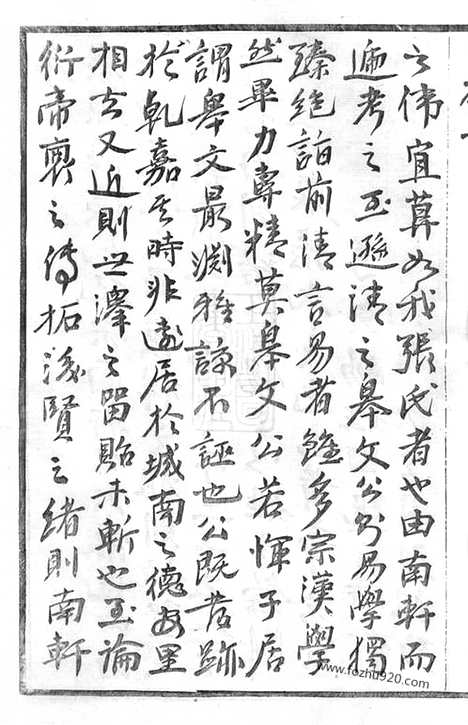 之偉宜莫如我張氏者也由南軒而
遍考之至遜清之皋文公則易學獨
臻絕詣前清言易者雖多宗漢學
然畢力專精莫皋文公若惲子居
謂皋文最淵雅諒不誣也公既昔跡
於乾嘉其時非遠居於城南之德安里
相去又近則世澤之留貽未斬也至論
衍帝裏之傳拓後賢之緒則南軒
www.fozhu920.com